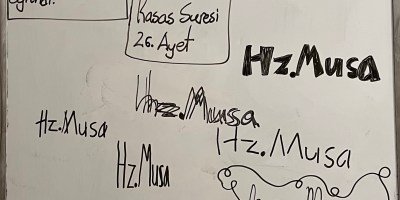 Kasas Suresi
26. Ayet
Hz. Musa
Hz. Musa
Hz. Musa
Hz. Musa
Hz. Musa